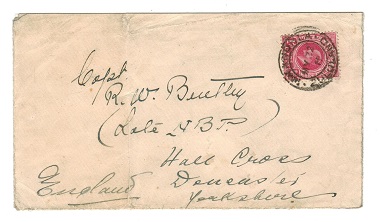 Capt.
R. W. Bentley
(Late N.B.P.
Hall Cross
Doncaster
Yorkshire
England